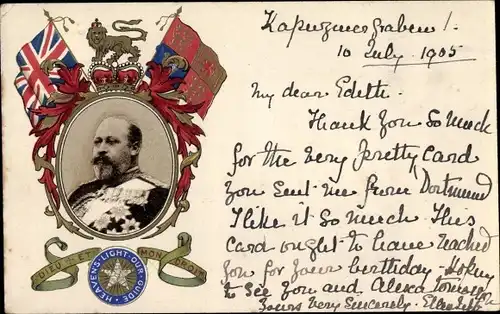 Kapuzinergraben 1.
10 July. 1905
My dear Edith.
Thank you so much
for the very pretty card
you sent me from Dortmund
I like it so much. This
card ought to have reached
you for your birthday. Hoping
to see you and Alexa
Yours very sincerely. Ellen
DIEU ET MON DROIT
HEAVENS · LIGHT · OUR · GUIDE